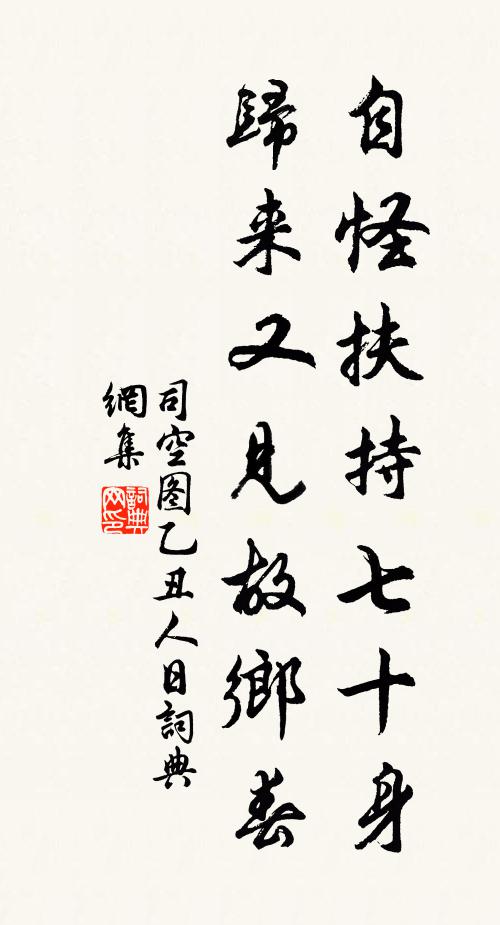 自怪扶持七十身
歸来又見故鄉春
司空图乙丑人日詞典
網集
詞典
网印